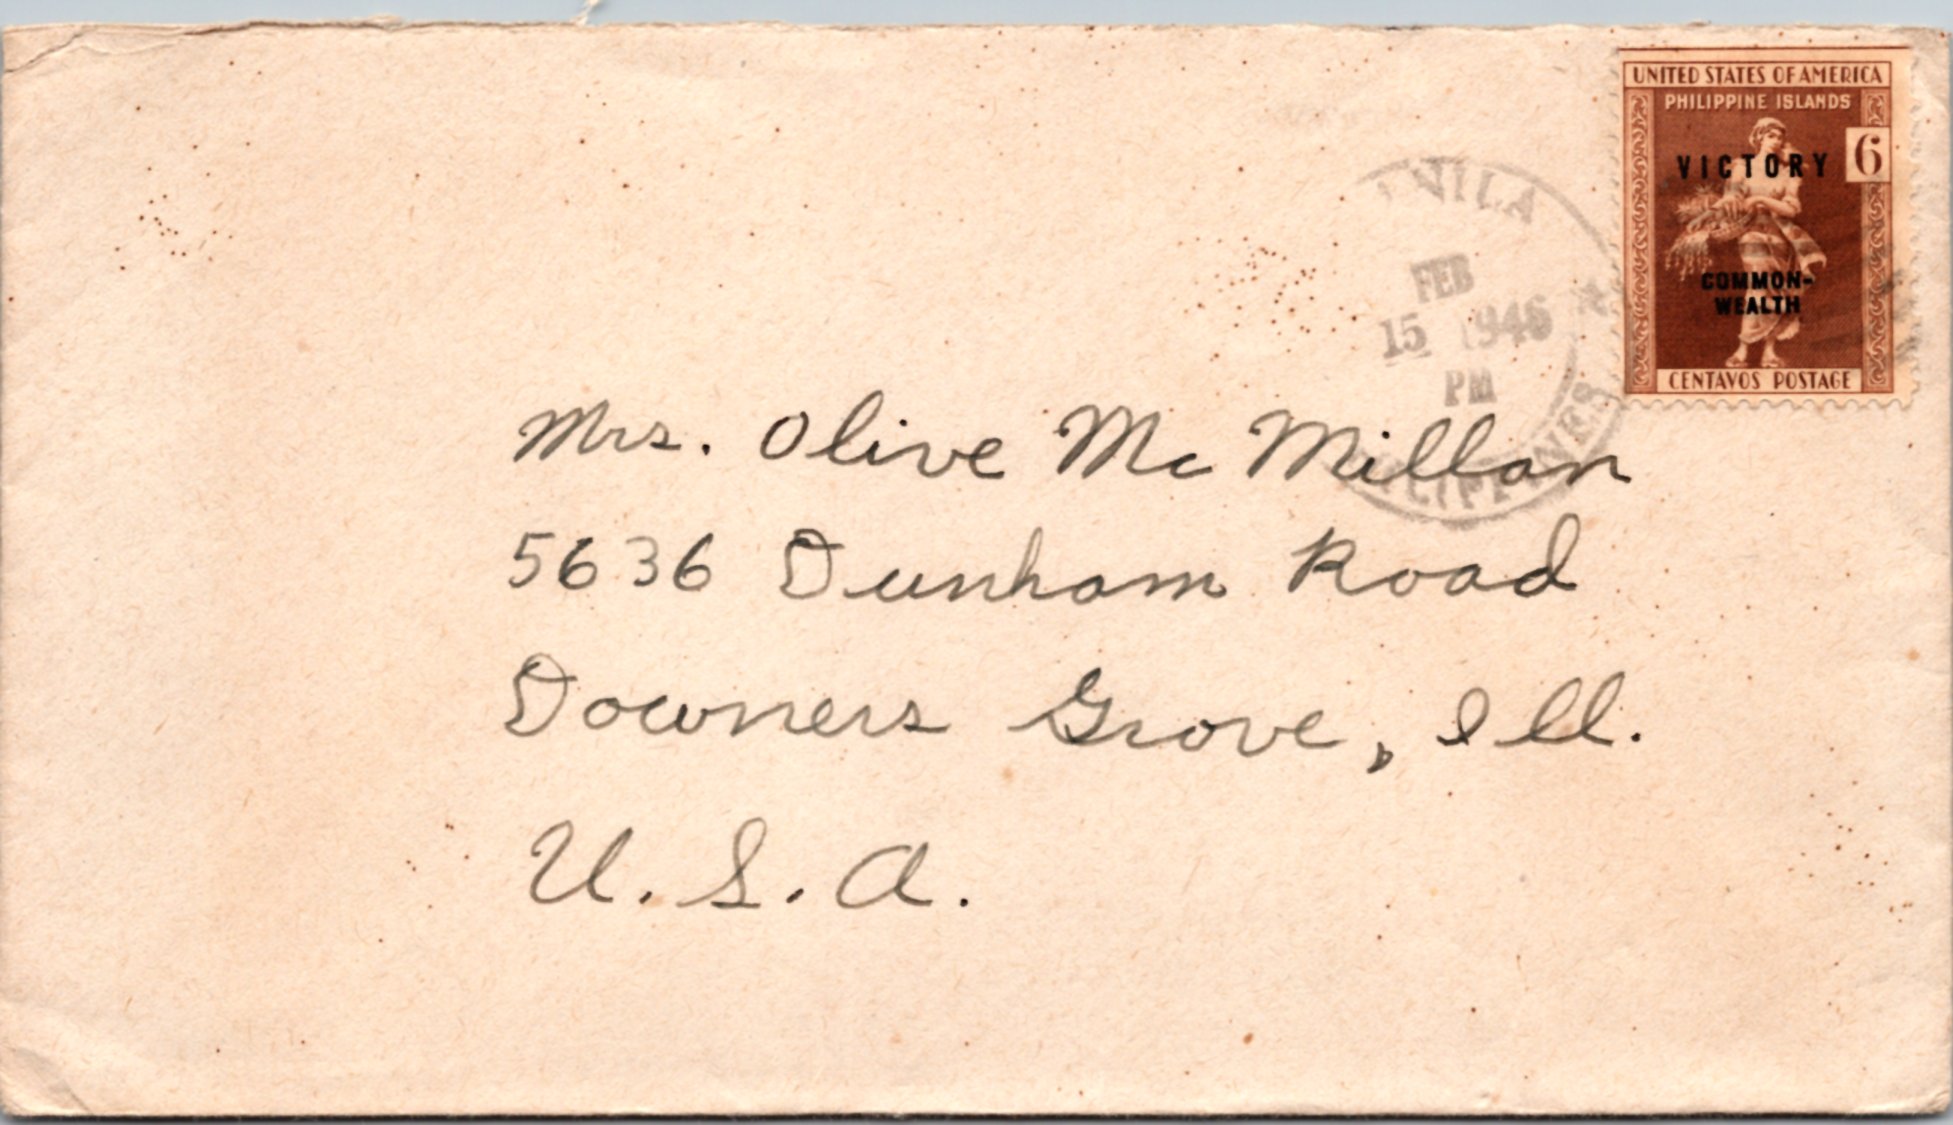 UNITED STATES OF AMERICA
PHILIPPINE ISLANDS
6
VICTORY
COMMON-
WEALTH
CENTAVOS POSTAGE
MANILA
FEB
15 1946
PM
PHILIPPINES
Mrs. Olive Mc Millan
5636 Dunham Road
Downers Grove, Ill.
U.S.A.